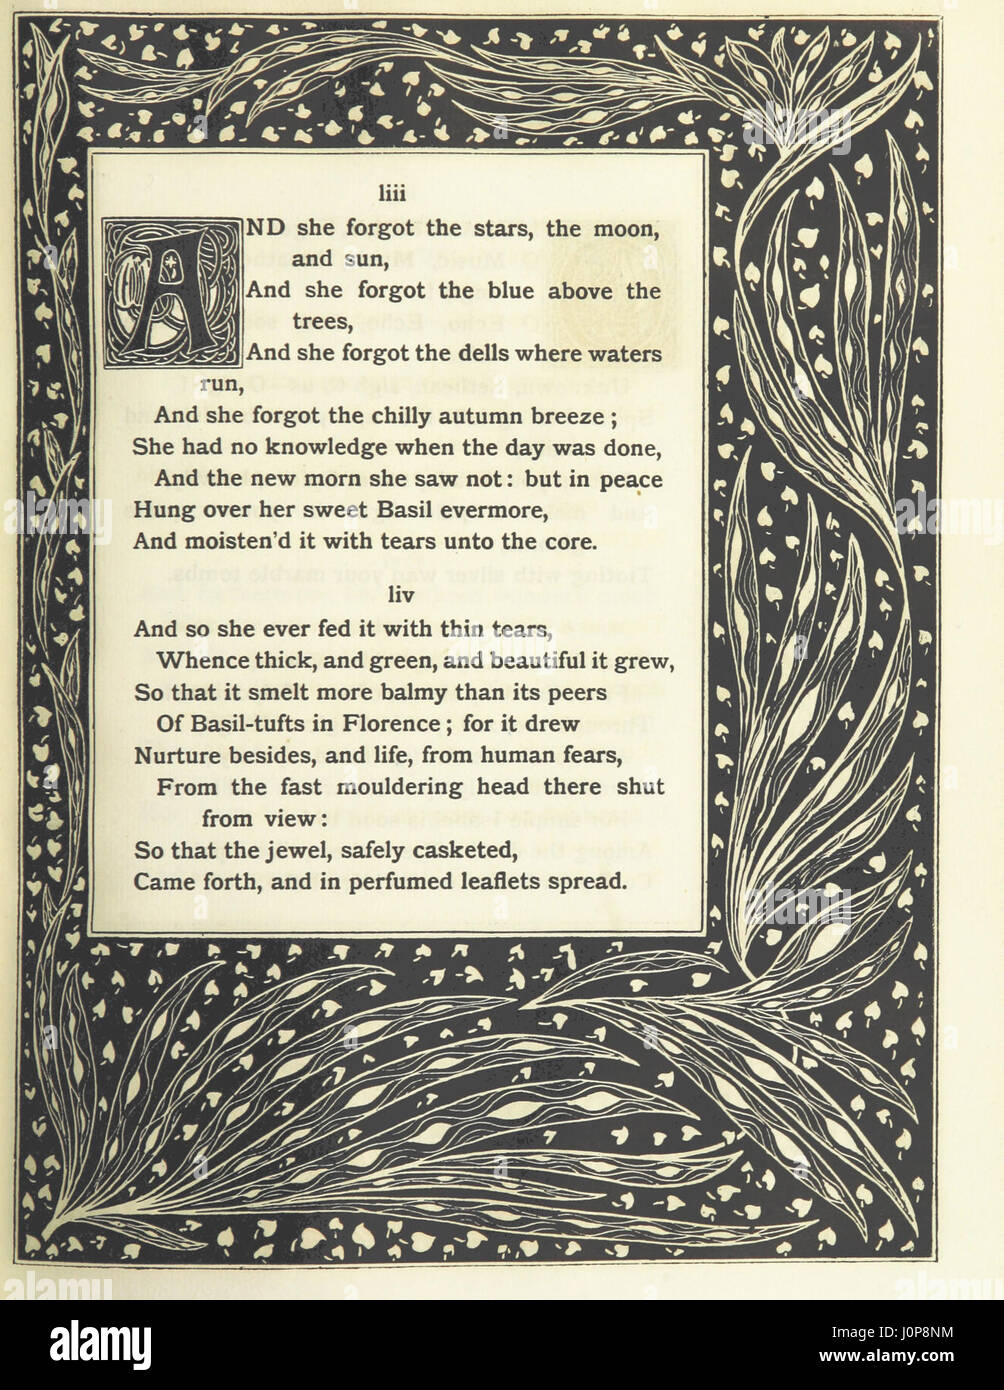 liii
AND she forgot the stars, the moon,
and sun,
And she forgot the blue above the
trees,
And she forgot the dells where waters
run,
And she forgot the chilly autumn breeze ;
She had no knowledge when the day was done,
And the new morn she saw not : but in peace
Hung over her sweet Basil evermore,
And moisten'd it with tears unto the core.
liv
And so she ever fed it with thin tears,
Whence thick, and green, and beautiful it grew,
So that it smelt more balmy than its peers
Of Basil-tufts in Florence ; for it drew
Nurture besides, and life, from human fears,
From the fast mouldering head there shut
from view :
So that the jewel, safely casketed,
Came forth, and in perfumed leaflets spread.
alamy
alamy
Image ID: J0P8NM
www.alamy.com